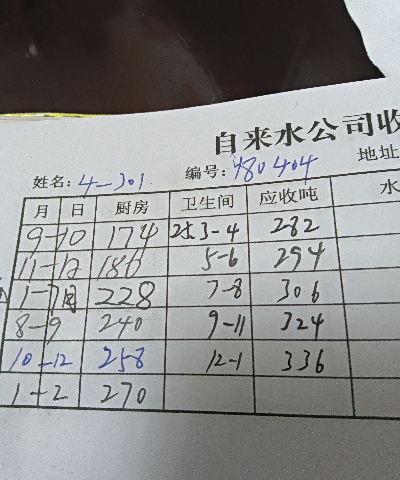 自来水公司收
姓名: 4-301 编号: 480404 地址
月 日 厨房 卫生间 应收吨 水
9-10 174 25.3-4 282
11-12 186 5-6 294
1-7月 228 7-8 306
8-9 240 9-11 324
10-12 258 12-1 336
1-2 270